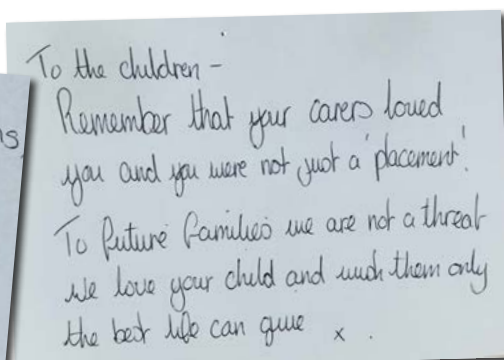 To the children -
Remember that your carers loved
you and you were not just a 'placement'.
To future families we are not a threat
We love your child and wish them only
the best life can give x .